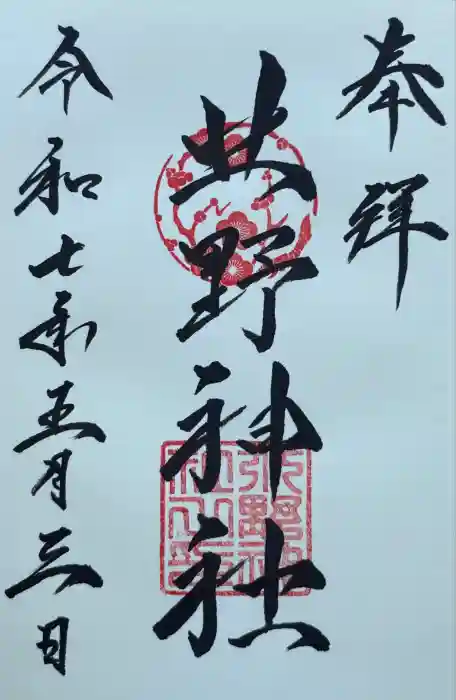 奉拝
氷野神社
令和七年五月三日
氷野神
社之印